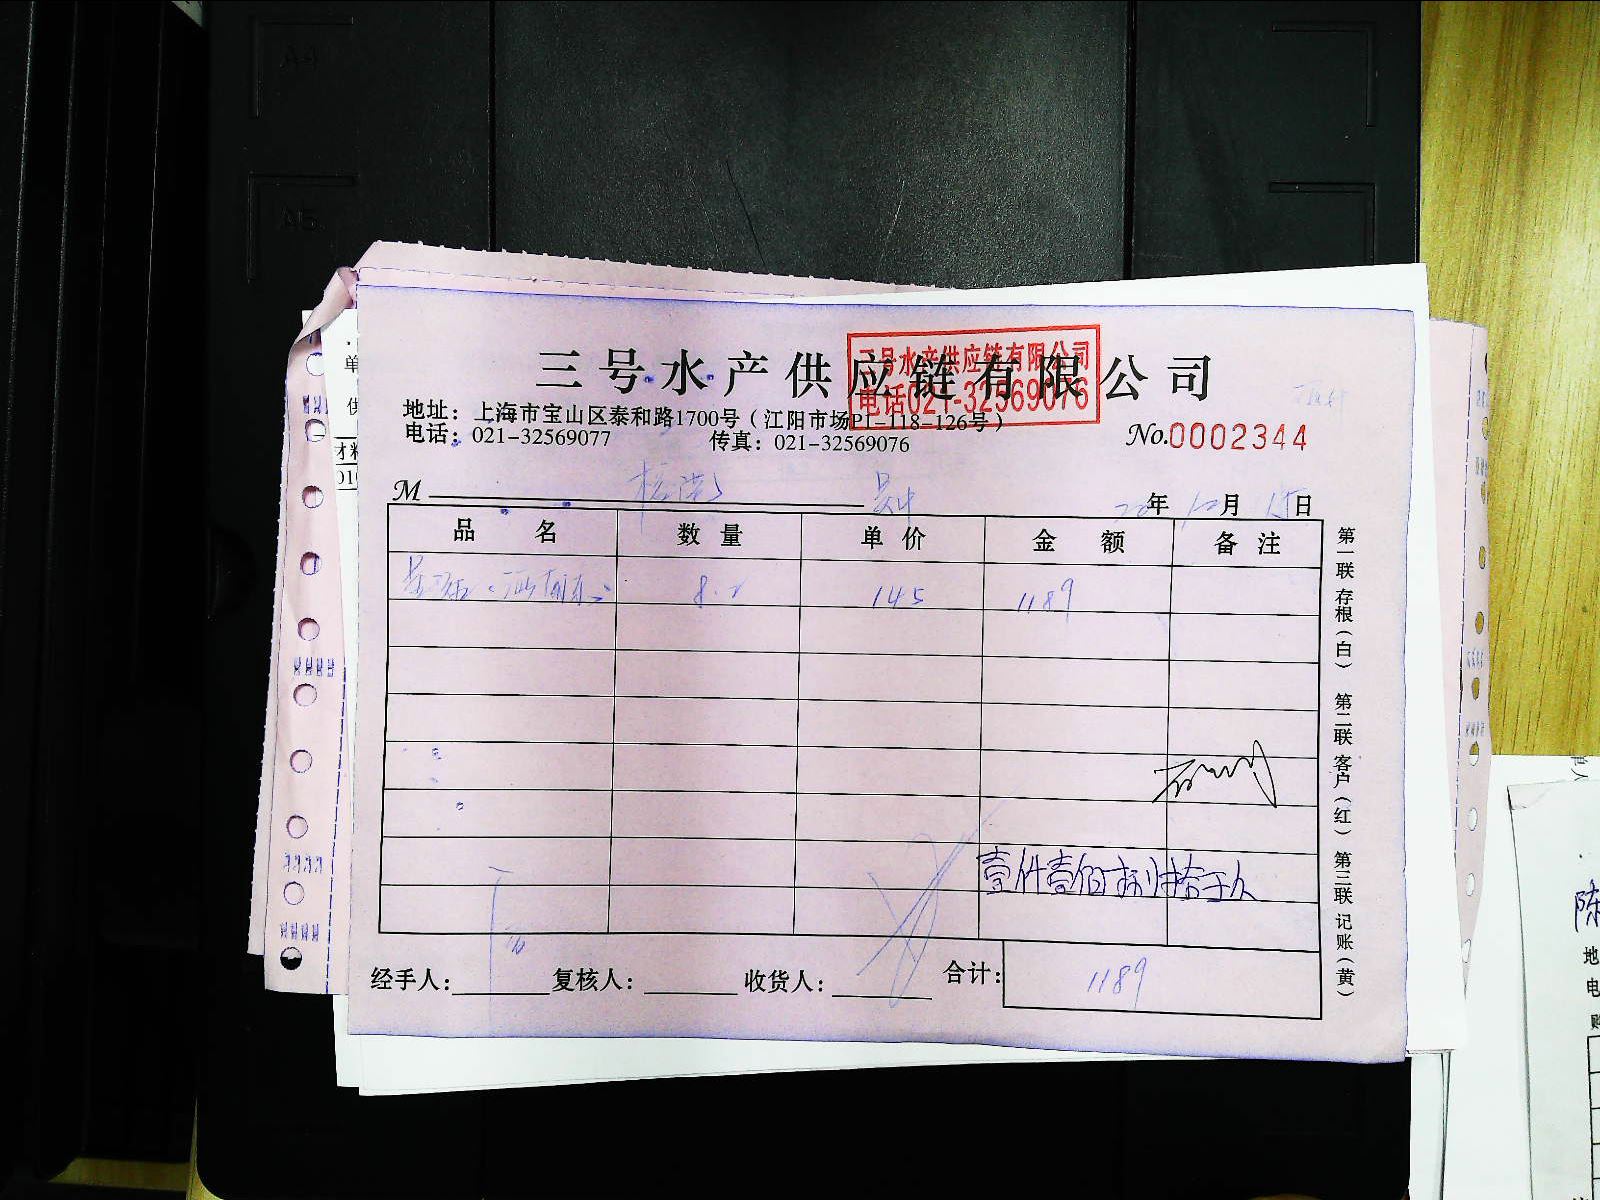 三号水产供应链有限公司
三号水产供应链有限公司
电话021-32569076
地址：上海市宝山区泰和路1700号（江阳市场P1-118-126号）
电话：021-32569077 传真：021-32569076
No.0002344
M
20年12月15日
品名 数量 单价 金额 备注
8.2 145 1189
壹仟壹佰捌拾
经手人： 复核人： 收货人： 合计： 1189
第一联存根（白） 第二联客户（红） 第三联记账（黄）
A4
A5
单
供
材料
01
陈
地
电
购